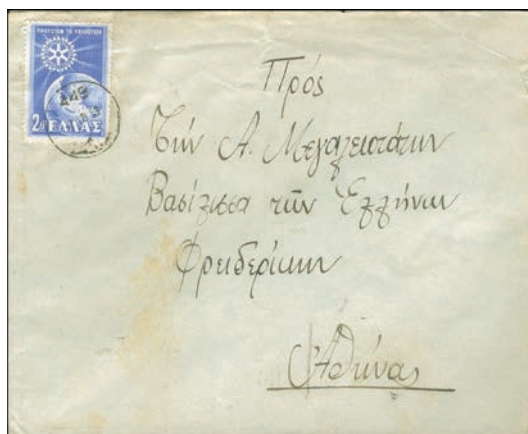 2 ΕΛΛΑΣ
449
Πρός
Τήν Α. Μεγαλειοτάτην
Βασίλισσα τῶν Ἑλλήνων
Φρειδερίκην
Ἀθήνας